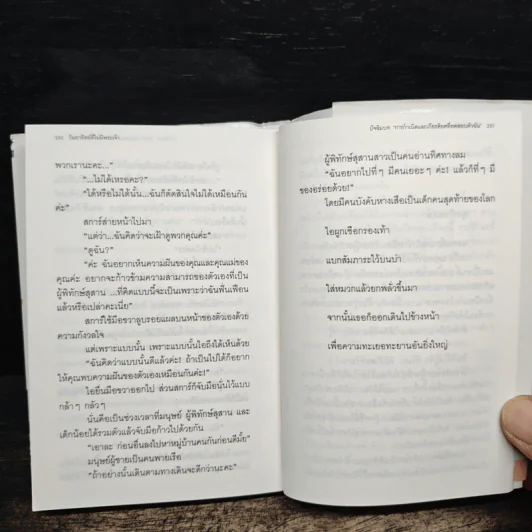 350 วันอาทิตย์ที่ไม่มีพระเจ้า
พวกเรานะคะ..."
"...ไม่ได้เหรอคะ?"
"ได้หรือไม่ได้นั้น...ฉันก็ตัดสินใจไม่ได้เหมือนกัน
ค่ะ"
สการ์ส่ายหน้าไปมา
"แต่ว่า...ฉันคิดว่าจะเฝ้าดูพวกคุณค่ะ"
"ดูฉัน?"
"ค่ะ ฉันอยากเห็นความฝันของคุณและคุณแม่ของ
คุณค่ะ อยากจะก้าวข้ามความสามารถของตัวเองที่เป็น
ผู้พิทักษ์สุสาน ...ที่คิดแบบนี้จะเป็นเพราะว่าฉันฟั่นเฟือน
แล้วหรือเปล่าคะเนี่ย"
สการ์ใช้มือขวาลูบรอยแผลบนหน้าของตัวเองด้วย
ความกังวลใจ
แต่เพราะแบบนั้น เพราะแบบนั้นไอถึงได้เห็นด้วย
"ฉันคิดว่าแบบนั้นดีแล้วค่ะ! ถ้าเป็นไปได้ก็อยาก
ให้คุณพบความฝันของตัวเองเหมือนกันค่ะ!"
ไอยื่นมือขวาออกไป ส่วนสการ์ก็จับมือนั้นไว้แบบ
กล้าๆ กลัวๆ
นั่นคือเป็นช่วงเวลาที่มนุษย์ ผู้พิทักษ์สุสาน และ
เด็กน้อยได้รวมตัวแล้วจับมือก้าวไปด้วยกัน
"เอาละ ก่อนอื่นลงไปหาหมู่บ้านคนกันก่อนดีมั้ย"
มนุษย์ผู้ชายเป็นคนพายเรือ
"ถ้าอย่างนั้นเดินตามทางเดินจะดีกว่านะคะ"
ปัจฉิมบท "การกำเนิดและเกียรติยศที่ทดสอบตัวฉัน" 351
ผู้พิทักษ์สุสานสาวเป็นคนอ่านทิศทางลม
"ฉันอยากไปที่ๆ มีคนเยอะๆ ค่ะ! แล้วก็ที่ๆ มี
ของอร่อยด้วย!"
โดยมีคนบังคับหางเสือเป็นเด็กคนสุดท้ายของโลก
ไอผูกเชือกรองเท้า
แบกสัมภาระไว้บนบ่า
ใส่หมวกแล้วยกพลั่วขึ้นมา
จากนั้นเธอก็ออกเดินไปข้างหน้า
เพื่อความทะเยอทะยานอันยิ่งใหญ่